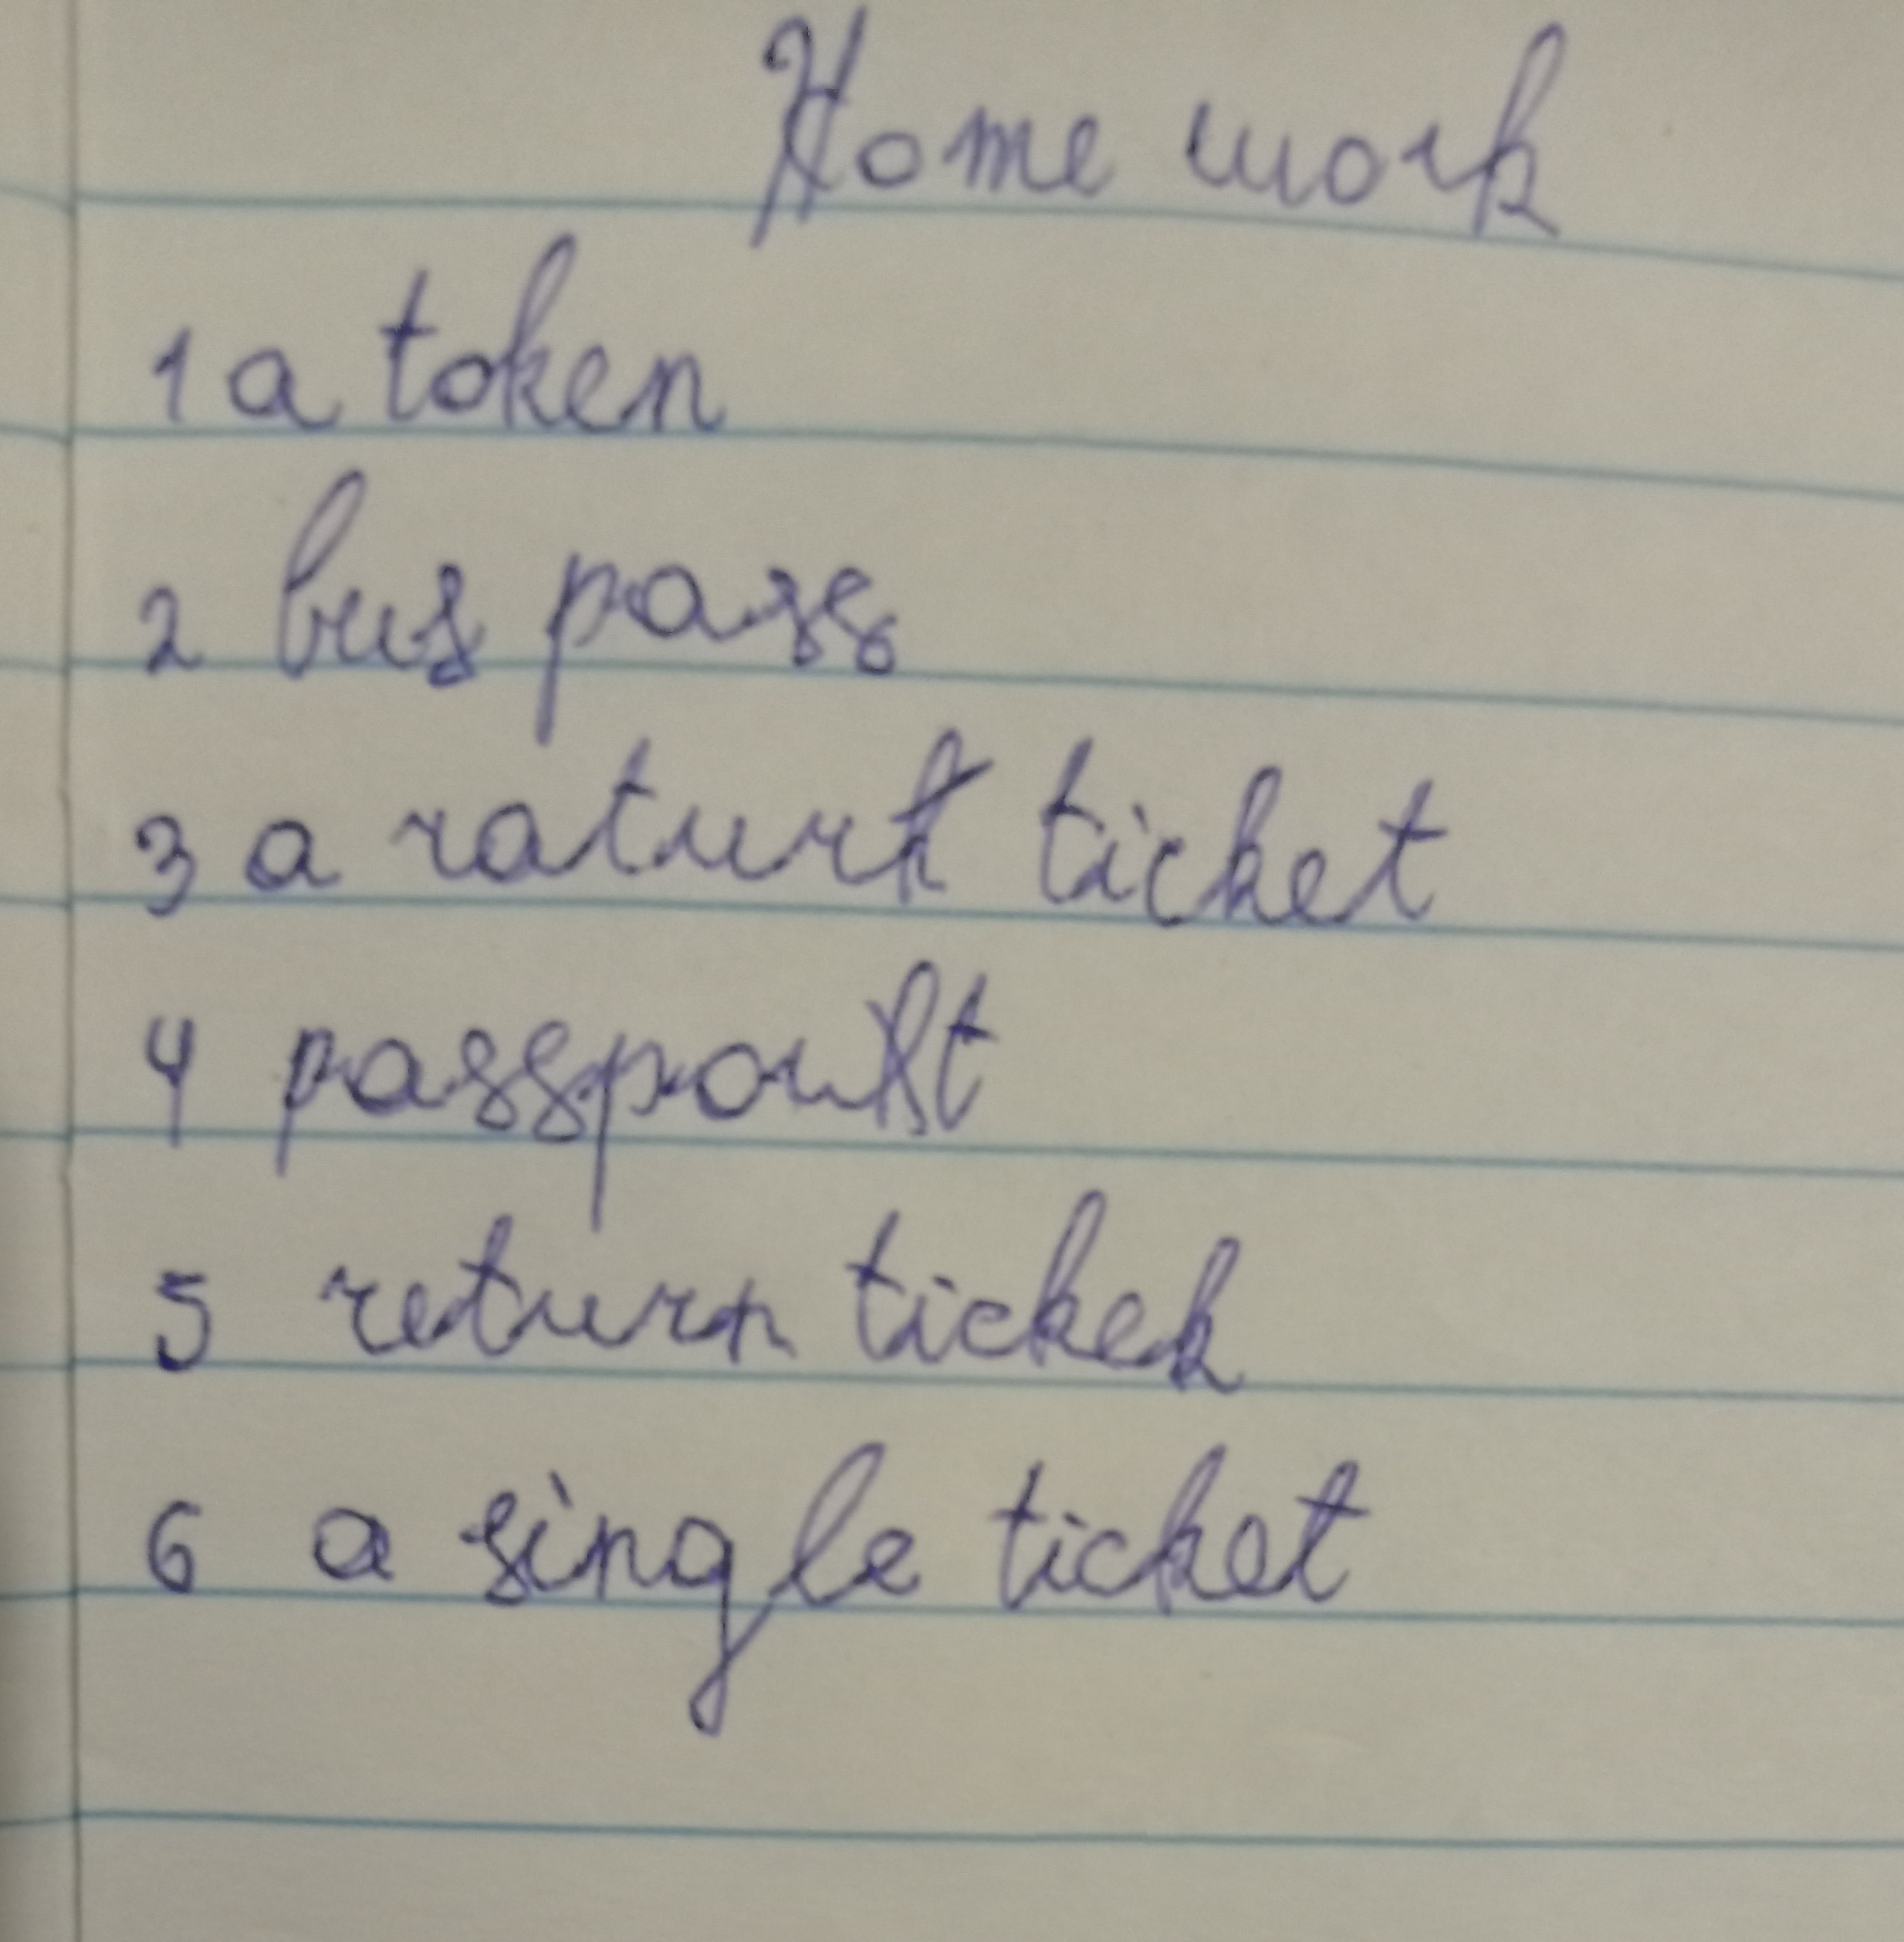 Home work
1 a token
2 bus pass
3 a raturk ticket
4 passpourt
5 return tickek
6 a single ticket